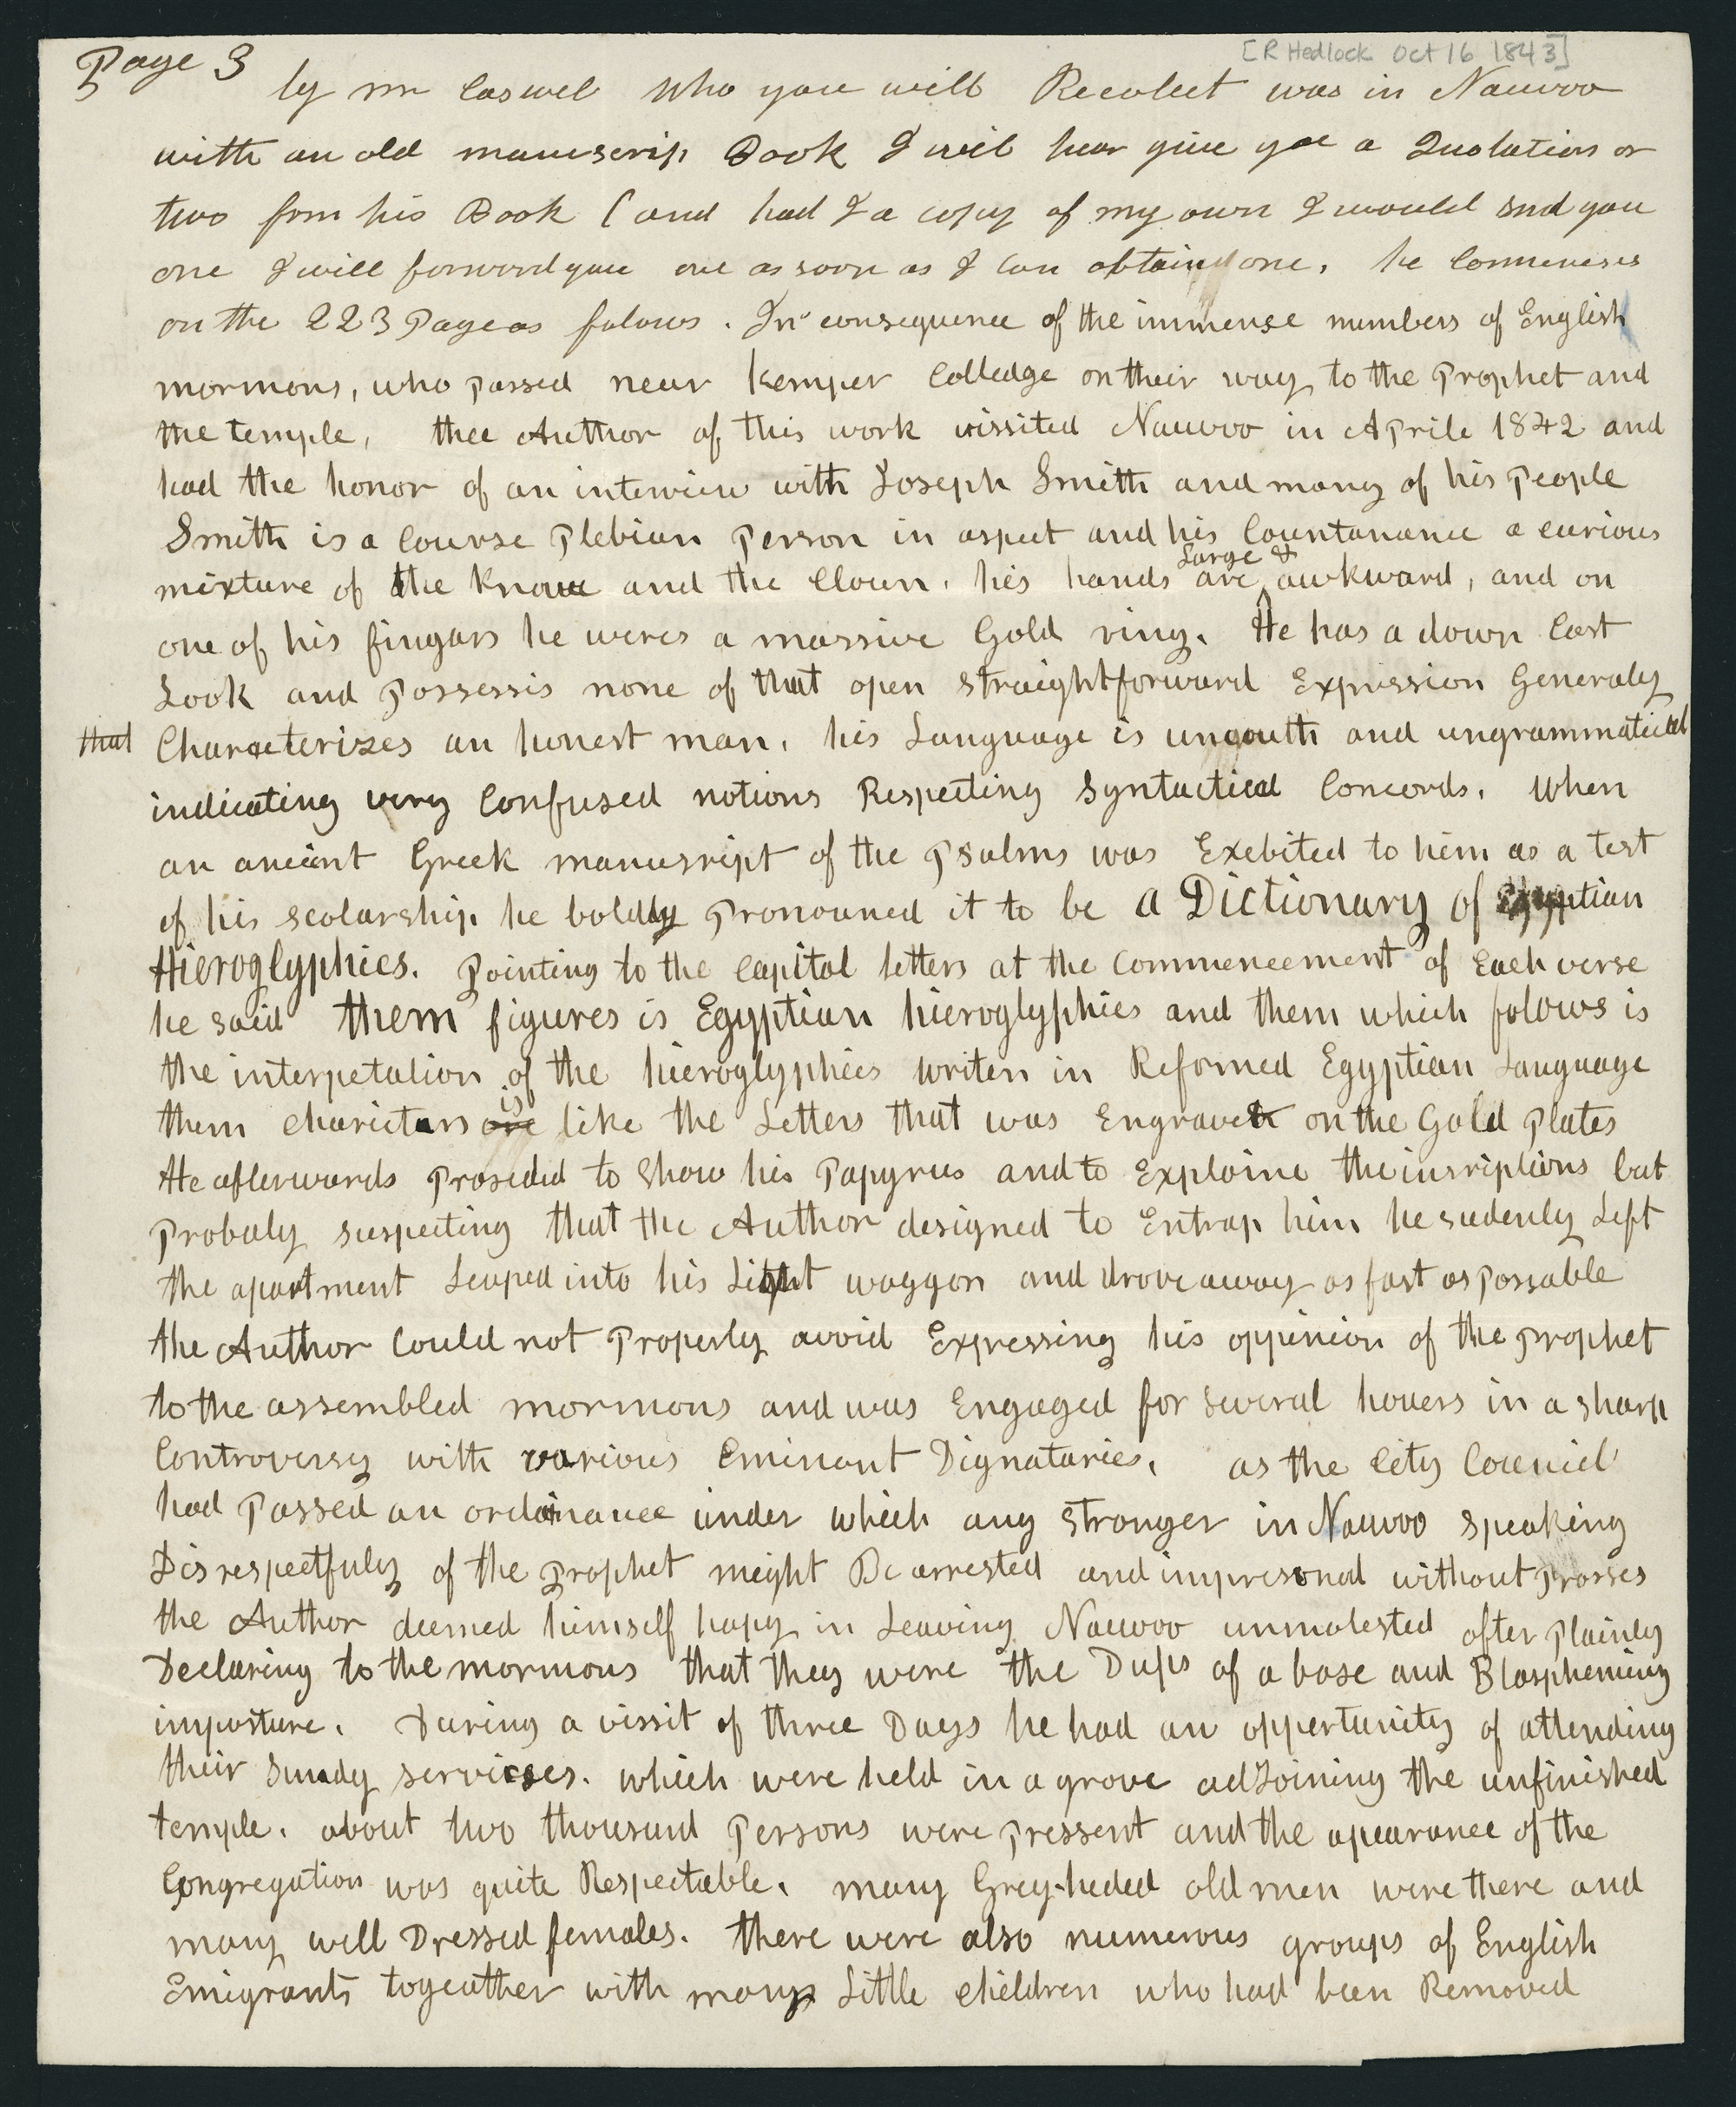 Page 3
[R Hedlock Oct 16 1843]
by mr Caswel who you will Recolect was in Nauvoo
with an old manuscrip Book I will hear give you a Quotation or
two from his Book (and had I a copy of my own I would snd you
one I will forword you one as soon as I can obtain one. he Commenses
on the 223 Page as folows. In consequence of the immense numbers of English
mormons, who Passed near Kemper Colledge on their way to the Prophet and
the temple, thee Author of this work vissited Nauvoo in Aprile 1842 and
had the honor of an interview with Joseph Smith and many of his People
Smith is a Course Plebian Person in aspect and his Countanance a curious
mixture of the Knave and the Clown. his hands are Large & awkward, and on
one of his fingars he weres a massive Gold ring. He has a down Cast
Look and Possessis none of that open straightforward Expression Generaly
that Characterizes an honest man. his Language is ungouth and ungrammatical
indicating very Confused notions Respecting Syntactical Concords. When
an ancient Greek manusript of the Psalms was Exebited to him as a test
of his scolarship he boldly Pronouned it to be a Dictionary of Egyptian
Hieroglyphics. Pointing to the Capital letters at the Commencement of Each verse
he said them figures is Egyptian hieroglyphics and them which folows is
the interpetation of the hieroglyphics writen in Reformed Egyptian Language
them charictars is like the Letters that was Engraved on the Gold Plates
He afterwards Proseded to Show his Papyrus and to Explaine the insriptions but
Probaly suspecting that the Author designed to Entrap him he sudenly Left
the apartment Leaped into his Light waggon and drove away as fast as Possable
the Author Could not Properly avoid Expressing his oppinion of the Prophet
to the assembled mormons and was Engaged for several houers in a sharp
Controversy with various Eminant Dignataries. as the City Council
had Passed an ordinance under which any stranger in Nauvoo speaking
Disrespectfuly of the Prophet might Be arrested and impresonod without Prosses
the Author deemed himself hapy in Leaving Nauvoo unmolested after Plainly
Declaring to the mormons that they were the Dups of a base and Blaspheming
imposture. During a vissit of three Days he had an oppertunity of attending
their Sunady services. which were held in a grove adJoining the unfinished
temple. about two thousand Persons were Pressent and the apearance of the
Congregation was quite Respectable. many Grey-heded old men were there and
many well Dressed females. there were also numerous groups of English
Emigrants togeather with many Little children who had been Removed